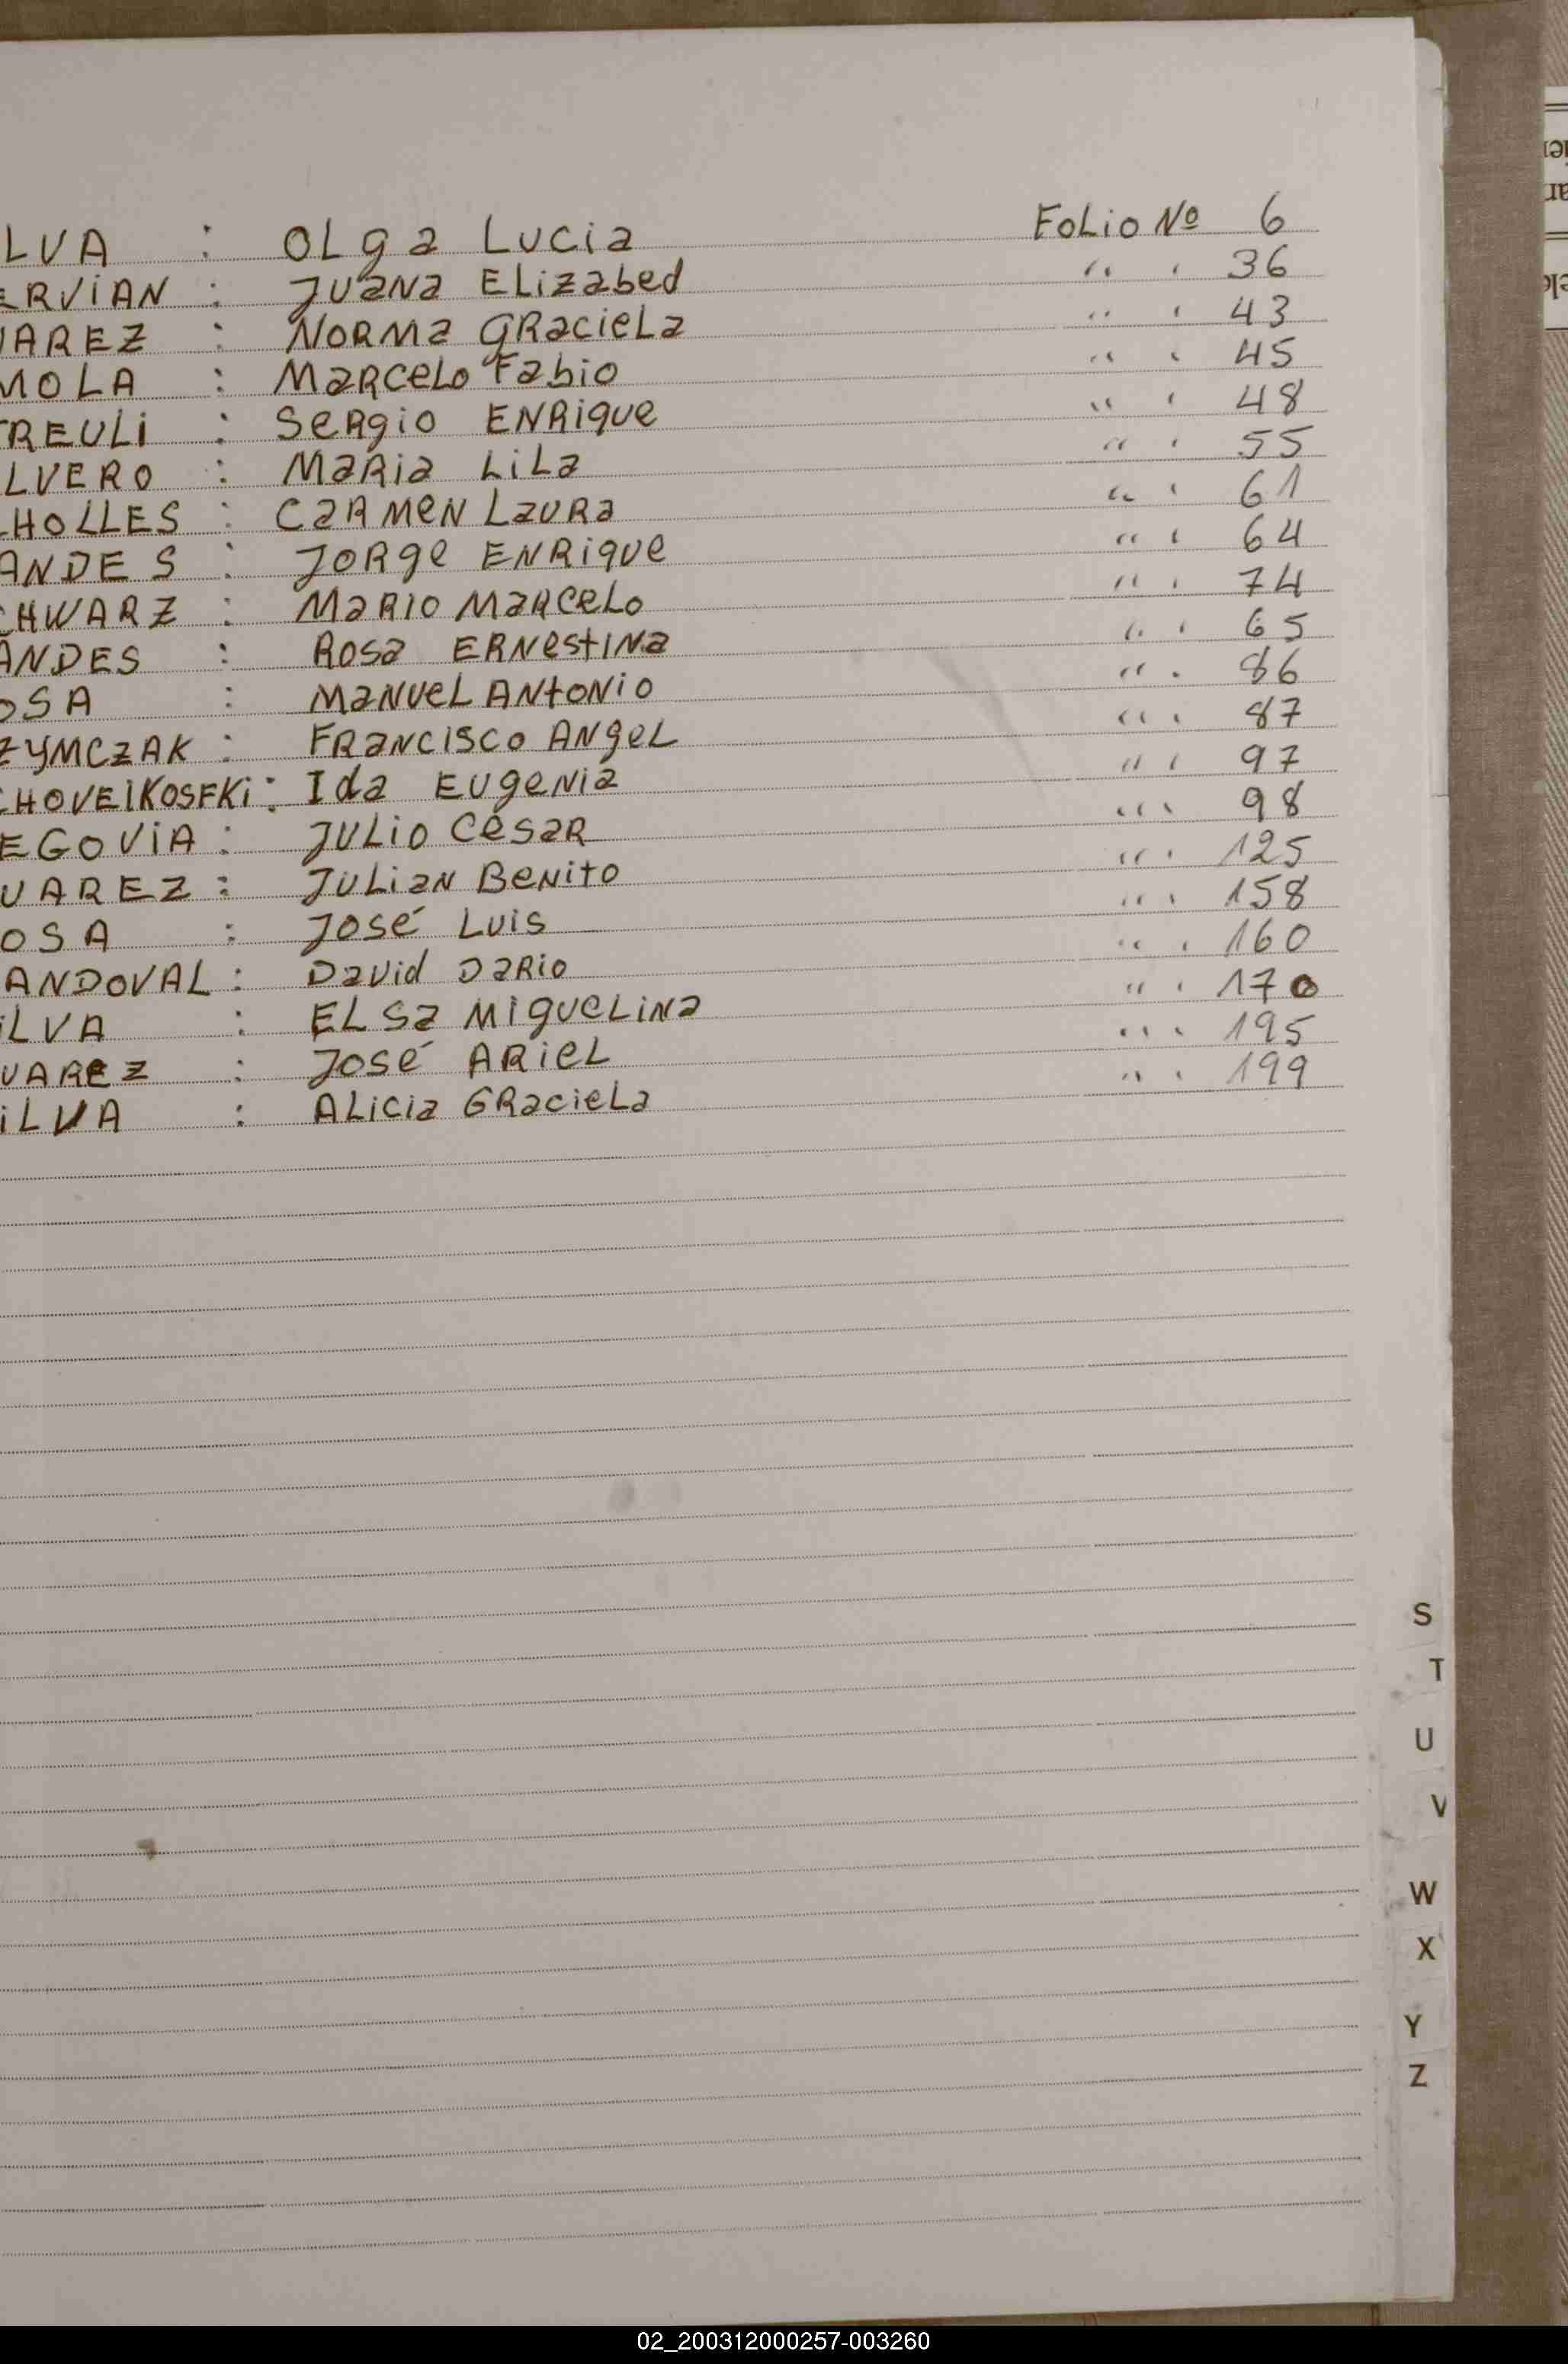 LVA : OLga Lucia Folio Nº 6
ERViAN : Juana Elizabed " ' 36
UAREZ : Norma Graciela " ' 43
MOLA : Marcelo Fabio " ' 45
TREULi : Sergio Enrique " ' 48
LVERO : Maria Lila " ' 55
HOLLES : Carmen Laura " ' 61
ANDES : Jorge Enrique " ' 64
CHWARZ : Mario Marcelo " ' 74
ANDES : Rosa Ernestina " ' 65
OSA : Manuel Antonio " ' 86
ZYMCZAK : Francisco Angel " ' 87
CHOVEIKOSFKi : Ida Eugenia " ' 97
EGOViA : Julio César " ' 98
UAREZ : Julian Benito " ' 125
OSA : José Luis " ' 158
ANDOVAL : David Dario " ' 160
iLVA : Elsa Miguelina " ' 170
UAREZ : José Ariel " ' 195
iLVA : Alicia Graciela " ' 199
S
T
U
V
W
X
Y
Z
02_200312000257-003260